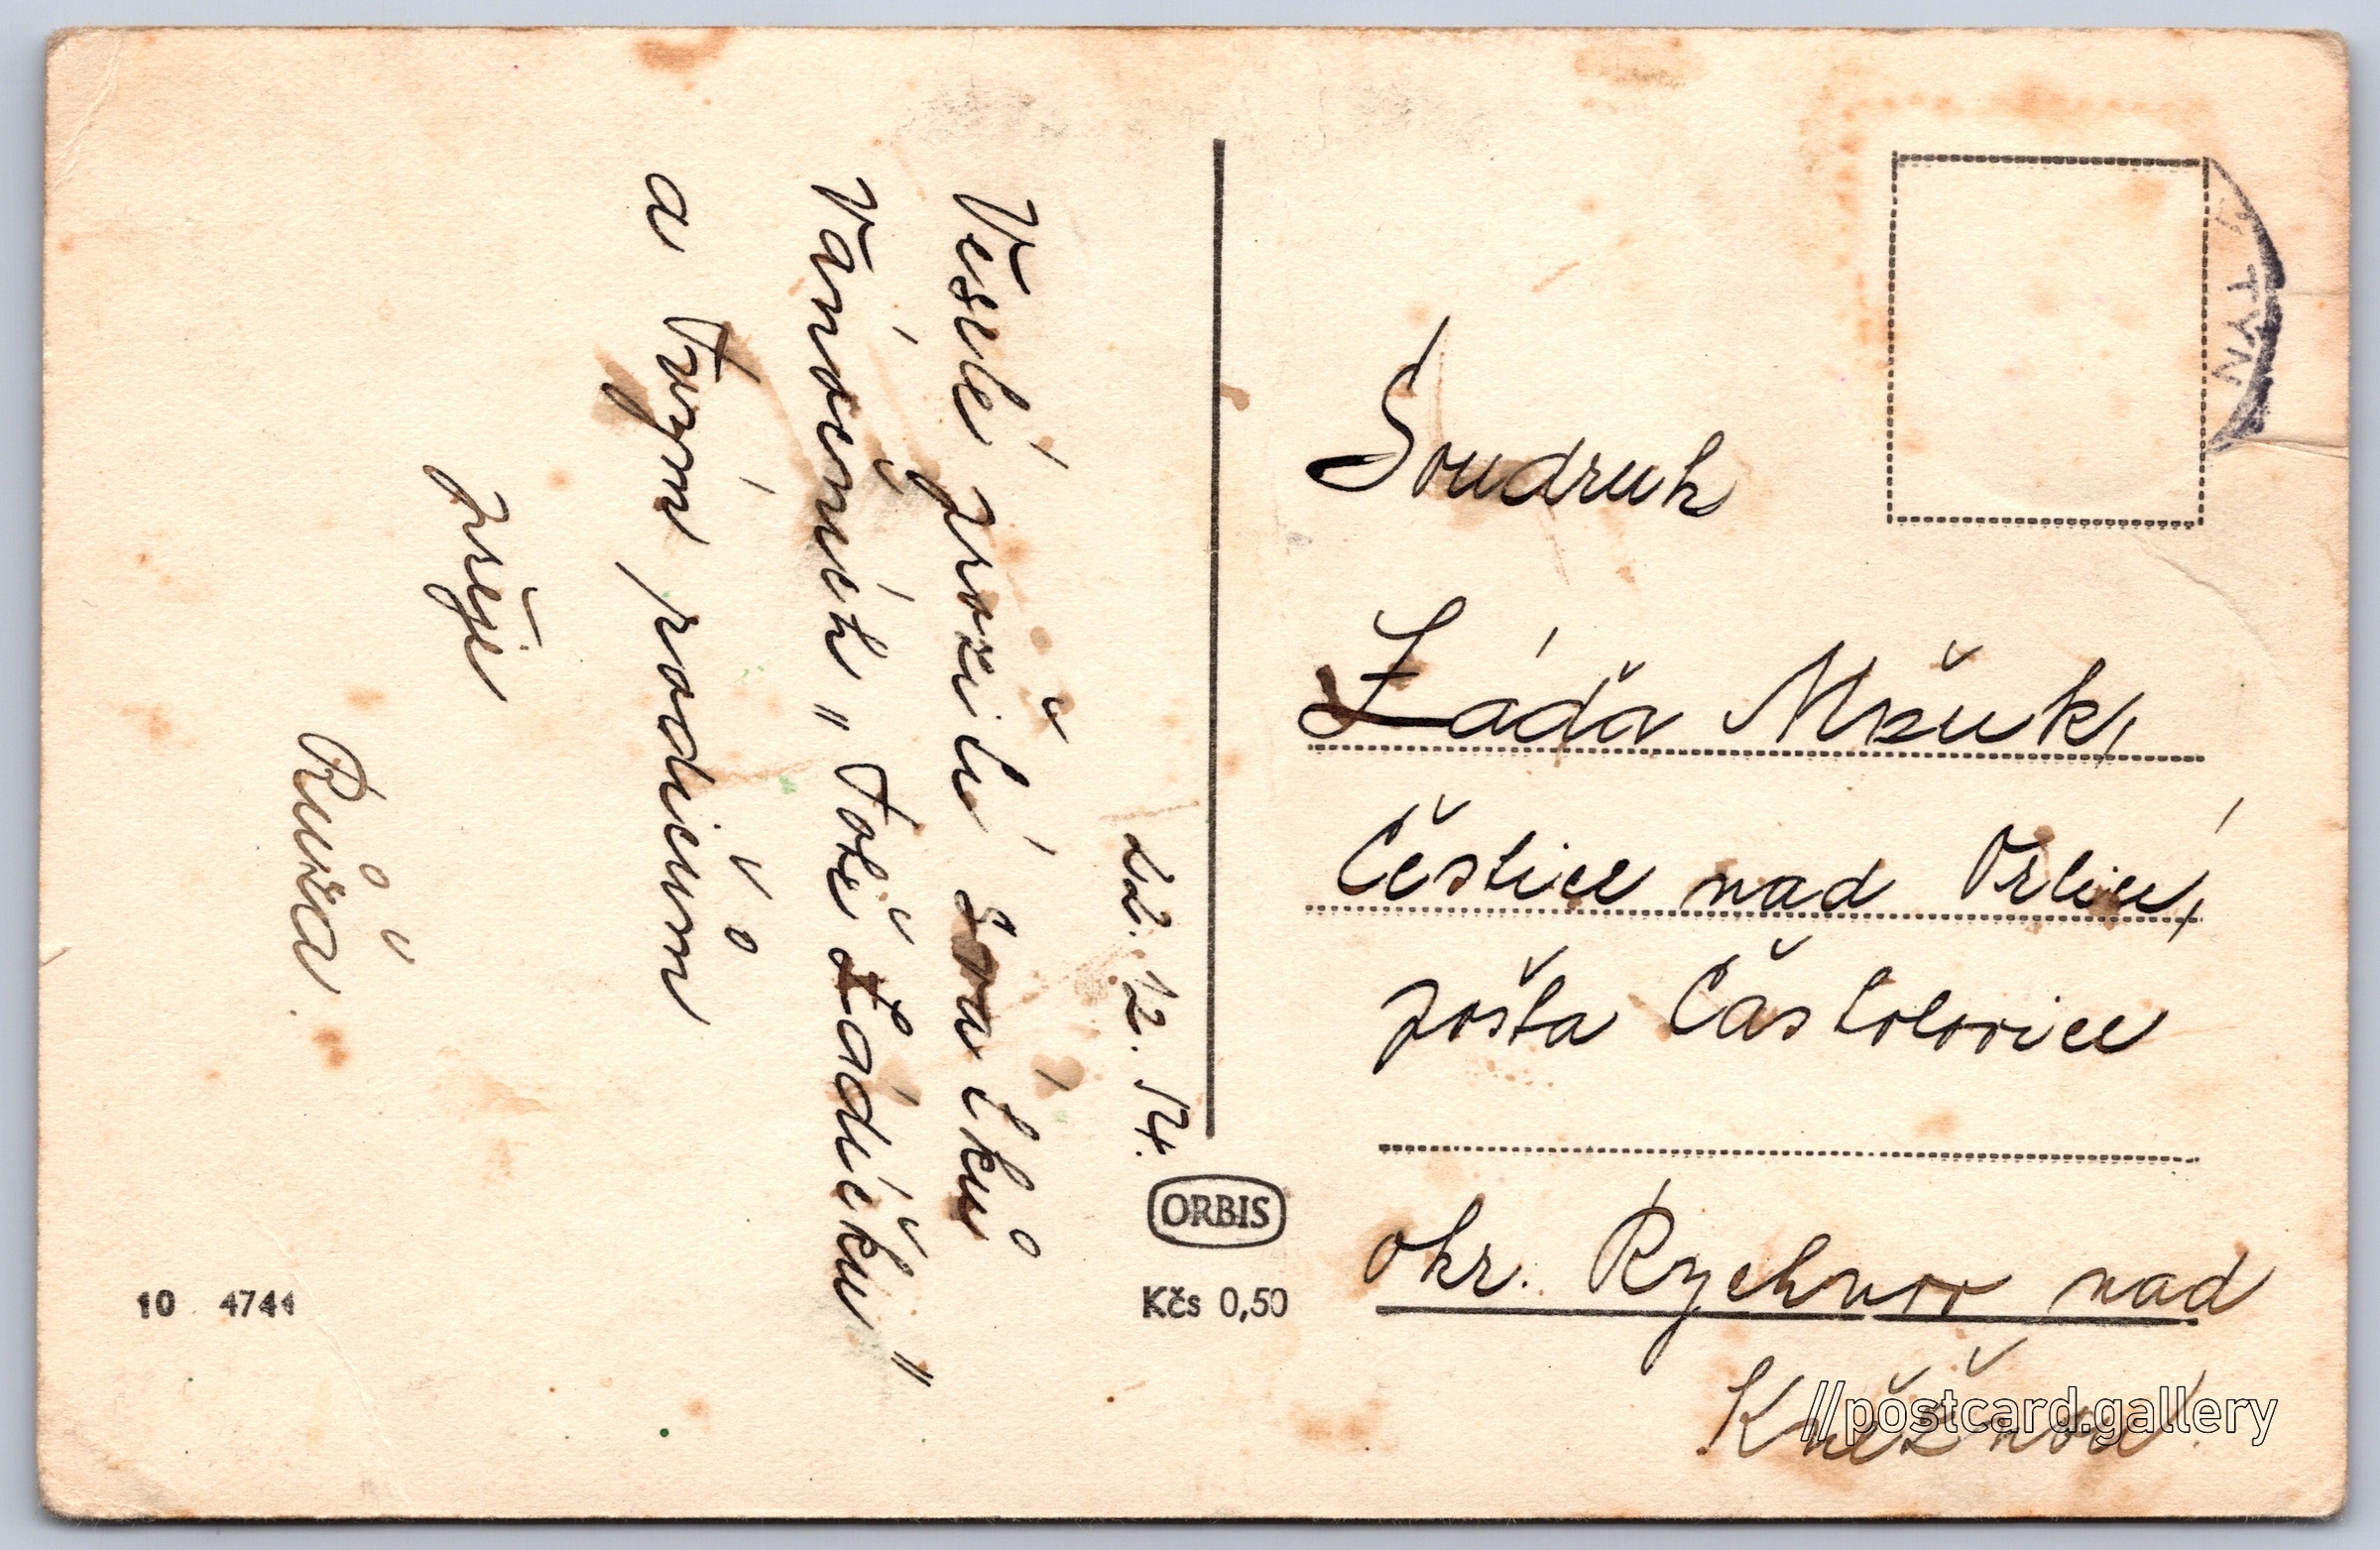 22. 12. 54.
Veselé prožití svátků
Vánočních „ tobě Ládíčku "
a tvým rodičům
přeje
Růža
Soudruh
Láďa Mžuk,
Čestice nad Orlicí,
pošta Častolovice
okr. Rychnov nad
Kněžnou.
ORBIS
Kčs 0,50
10 4744
TÝN
//postcard.gallery